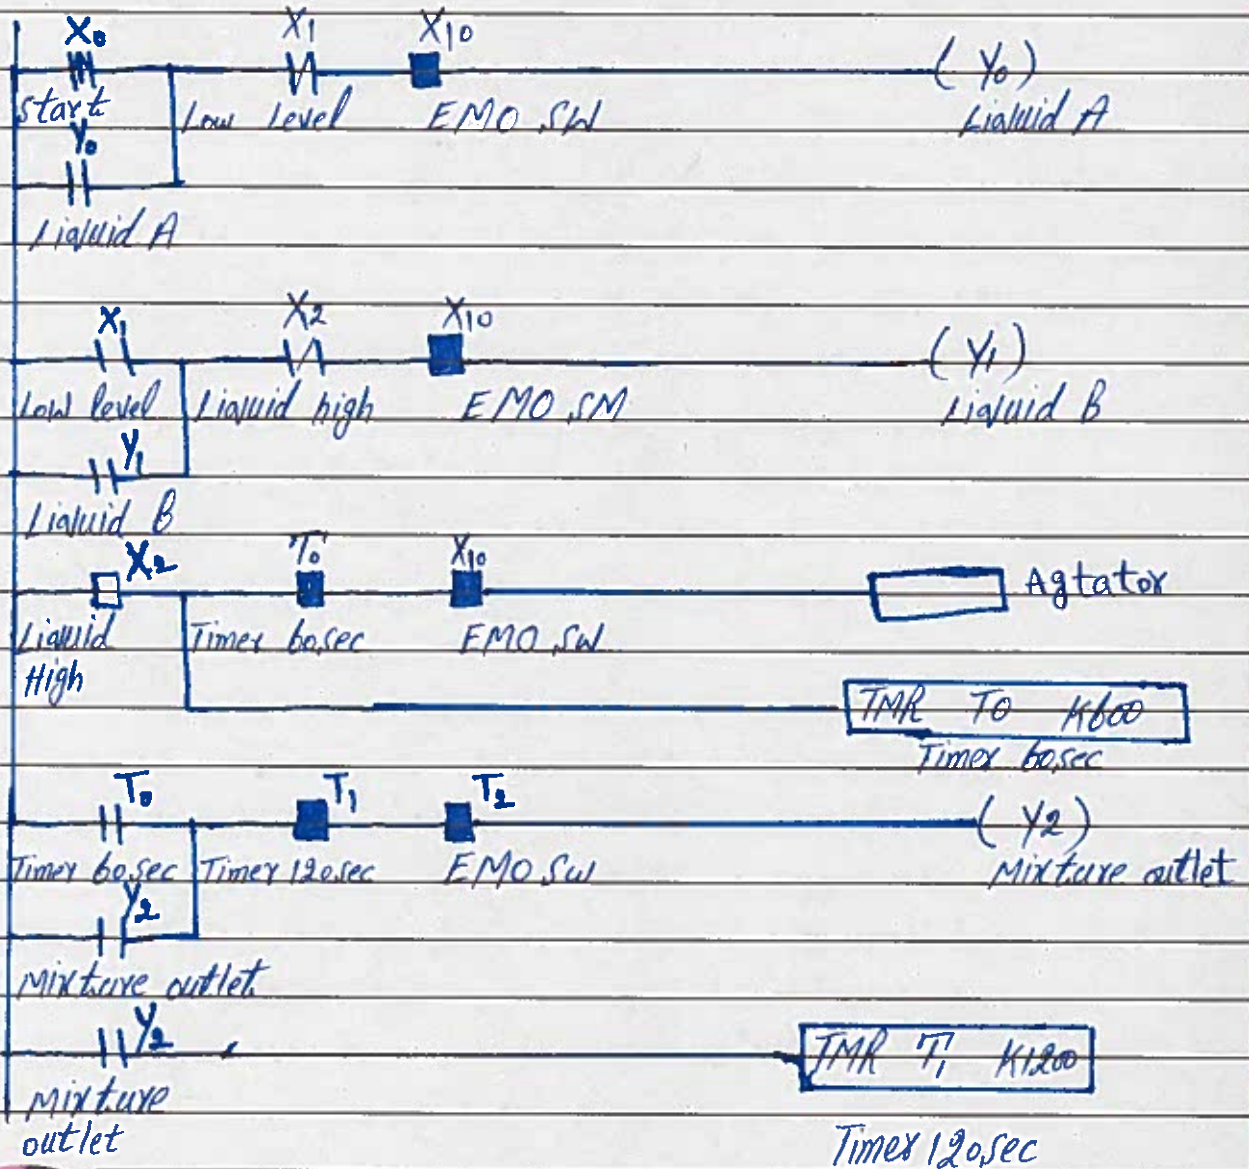 X0 X1 X10
( Y0 )
Start Low level EMO SW Liquid A
Y0
Liquid A
X1 X2 X10
( Y1 )
Low level Liquid high EMO SM Liquid B
Y1
Liquid B
X2 T0 X10
Agtator
Liquid Timer 60sec EMO SW
High
TMR T0 K600
Timer 60sec
T0 T1 T2
( Y2 )
Timer 60sec Timer 120sec EMO SW Mixture outlet
Y2
Mixture outlet
Y2
TMR T1 K1200
Mixture
outlet Timer 120sec